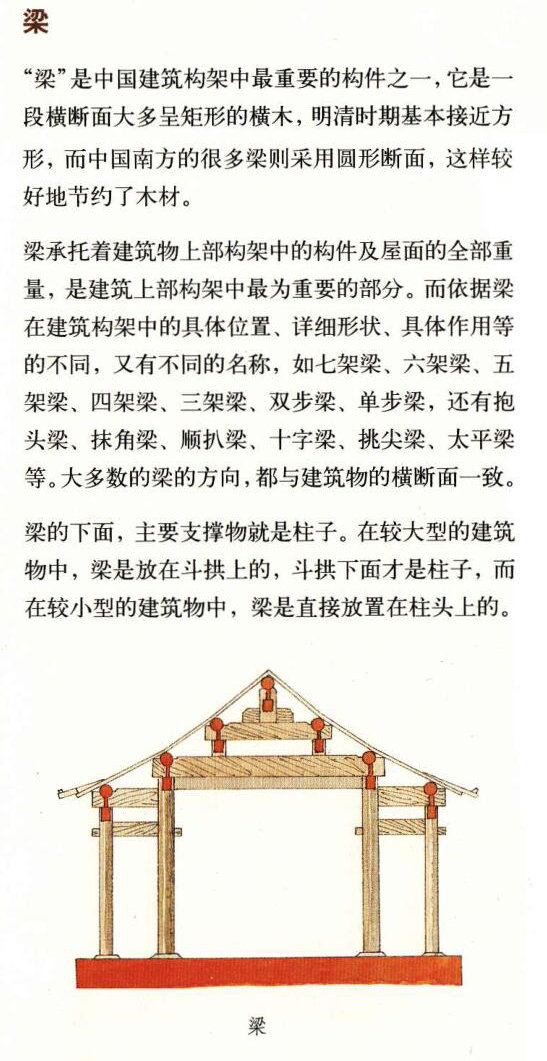 梁
“梁”是中国建筑构架中最重要的构件之一，它是一
段横断面大多呈矩形的横木，明清时期基本接近方
形，而中国南方的很多梁则采用圆形断面，这样较
好地节约了木材。
梁承托着建筑物上部构架中的构件及屋面的全部重
量，是建筑上部构架中最为重要的部分。而依据梁
在建筑构架中的具体位置、详细形状、具体作用等
的不同，又有不同的名称，如七架梁、六架梁、五
架梁、四架梁、三架梁、双步梁、单步梁，还有抱
头梁、抹角梁、顺扒梁、十字梁、挑尖梁、太平梁
等。大多数的梁的方向，都与建筑物的横断面一致。
梁的下面，主要支撑物就是柱子。在较大型的建筑
物中，梁是放在斗拱上的，斗拱下面才是柱子，而
在较小型的建筑物中，梁是直接放置在柱头上的。
梁